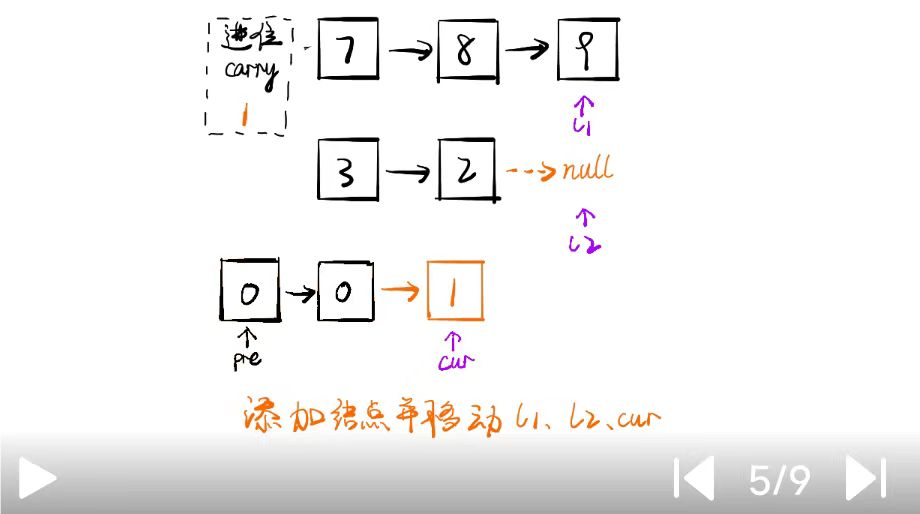 进位
carry
1
7 → 8 → 9
↑
l1
3 → 2 ⇢ null
↑
l2
0 → 0 → 1
↑ ↑
pre cur
添加结点并移动l1、l2、cur
5/9